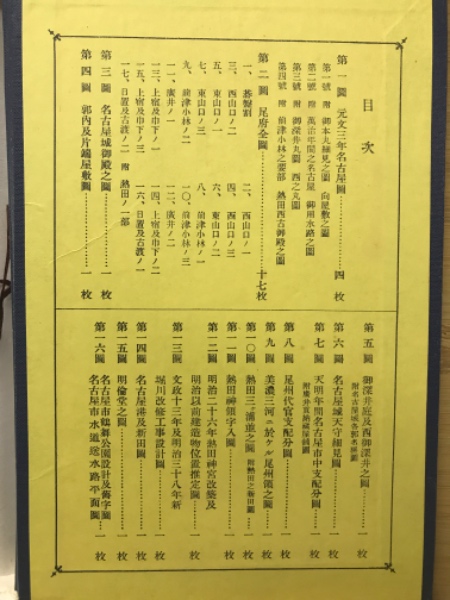 目次
第一圖 元文三年名古屋圖………四枚
第一號 附 御本丸細見之圖 向屋敷之圖
第二號 附 萬治年間之名古屋 御用水路之圖
第三號 附 御深井丸圖 西之丸圖
第四號 附 前津小林之要部 熱田西古御殿之圖
第二圖 尾府全圖………十七枚
一、碁盤割 二、西山口ノ一
三、西山口ノ二 四、西山口ノ三
五、東山口ノ一 六、東山口ノ二
七、東山口ノ三 八、前津小林ノ一
九、前津小林ノ二 一〇、前津小林ノ三
一一、廣井ノ一 一二、廣井ノ二
一三、上宿及巾下ノ一 一四、上宿及巾下ノ二
一五、上宿及巾下ノ三 一六、日置及古渡ノ一
一七、日置及古渡ノ二 附 熱田ノ一部
第三圖 名古屋城御殿之圖………一枚
第四圖 郭内及片端屋敷圖………一枚
第五圖 御深井庭及西御深井之圖………一枚
第六圖 名古屋城天守細見圖………一枚
第七圖 天明年間名古屋市中支配分圖………一枚
第八圖 尾州代官支配分圖………一枚
第九圖 美濃三河ニ於ケル尾州領之圖………一枚
第一〇圖 熱田三ヶ浦並之圖 附熱田之新田圖………一枚
第一一圖 熱田神領字入圖………一枚
第一二圖 明治二十六年熱田神宮改築及
明治以前建造物位置推定圖………一枚
第一三圖 文政十三年及明治三十八年新
堀川改修工事設計圖………一枚
第一四圖 名古屋港及新田圖………一枚
第一五圖 明倫堂之圖………一枚
第一六圖 名古屋市鶴舞公園設計及舊字圖
名古屋市水道送水路平面圖………一枚